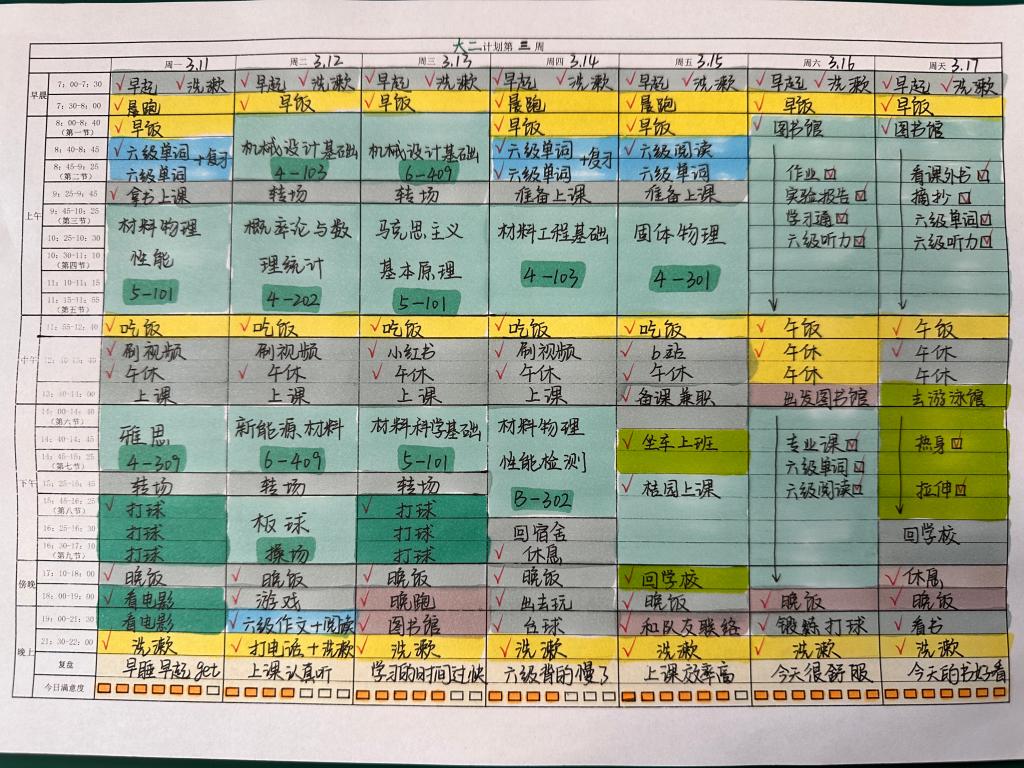 大二计划第三周
周一 3.11 周二 3.12 周三 3.13 周四 3.14 周五 3.15 周六 3.16 周天 3.17
早晨
7：00-7：30 早起 洗漱 早起 洗漱 早起 洗漱 早起 洗漱 早起 洗漱 早起 洗漱 早起 洗漱
7：30-8：00 晨跑 早饭 早饭 晨跑 晨跑 早饭 早饭
上午
8：00-8：40 早饭 早饭 早饭 图书馆 图书馆
（第一节）
8：40-8：45 六级单词 +复习 机械设计基础 机械设计基础 六级单词 +复习 六级阅读
8：45-9：25 六级单词 4-103 6-409 六级单词 六级单词 作业 看课外书
（第二节）
9：25-9：45 拿书上课 转场 转场 准备上课 准备上课 实验报告 摘抄
9：45-10：25 材料物理 概率论与数 马克思主义 材料工程基础 固体物理 学习通 六级单词
（第三节）
10：25-10：30 六级听力 六级听力
10：30-11：10 性能 理统计 基本原理 4-103 4-301
（第四节）
11：10-11：15
11：15-11：55 5-101 4-202 5-101
（第五节）
中午
11：55-12：40 吃饭 吃饭 吃饭 吃饭 吃饭 午饭 午饭
刷视频 刷视频 小红书 刷视频 b站 午休 午休
午休 午休 午休 午休 午休 午休 午休
上课 上课 上课 上课 备课兼职 出发图书馆 去游泳馆
下午
14：00-14：40 雅思 新能源材料 材料科学基础 材料物理
（第六节）
14：40-14：45 坐车上班 专业课 热身
14：45-15：25 4-309 6-409 5-101 性能检测 六级单词
（第七节）
15：25-15：45 转场 转场 转场 B-302 桂园上课 六级阅读 拉伸
15：45-16：25 打球 板球 打球
（第八节）
16：25-16：30 打球 打球 回宿舍 回学校
16：30-17：10 打球 操场 打球 休息
（第九节）
傍晚
17：10-18：00 晚饭 晚饭 晚饭 晚饭 回学校 休息
18：00-19：00 看电影 游戏 晚跑 出去玩 晚饭 晚饭 晚饭
晚上
19：00-21：30 看电影 六级作文+阅读 图书馆 台球 和队友联络 锻炼打球 看书
21：30-22：00 洗漱 打电话+洗漱 洗漱 洗漱 洗漱 洗漱 洗漱
复盘 早睡早起get 上课认真听 学习的时间过快 六级背的慢了 上课效率高 今天很舒服 今天的书好看
今日满意度